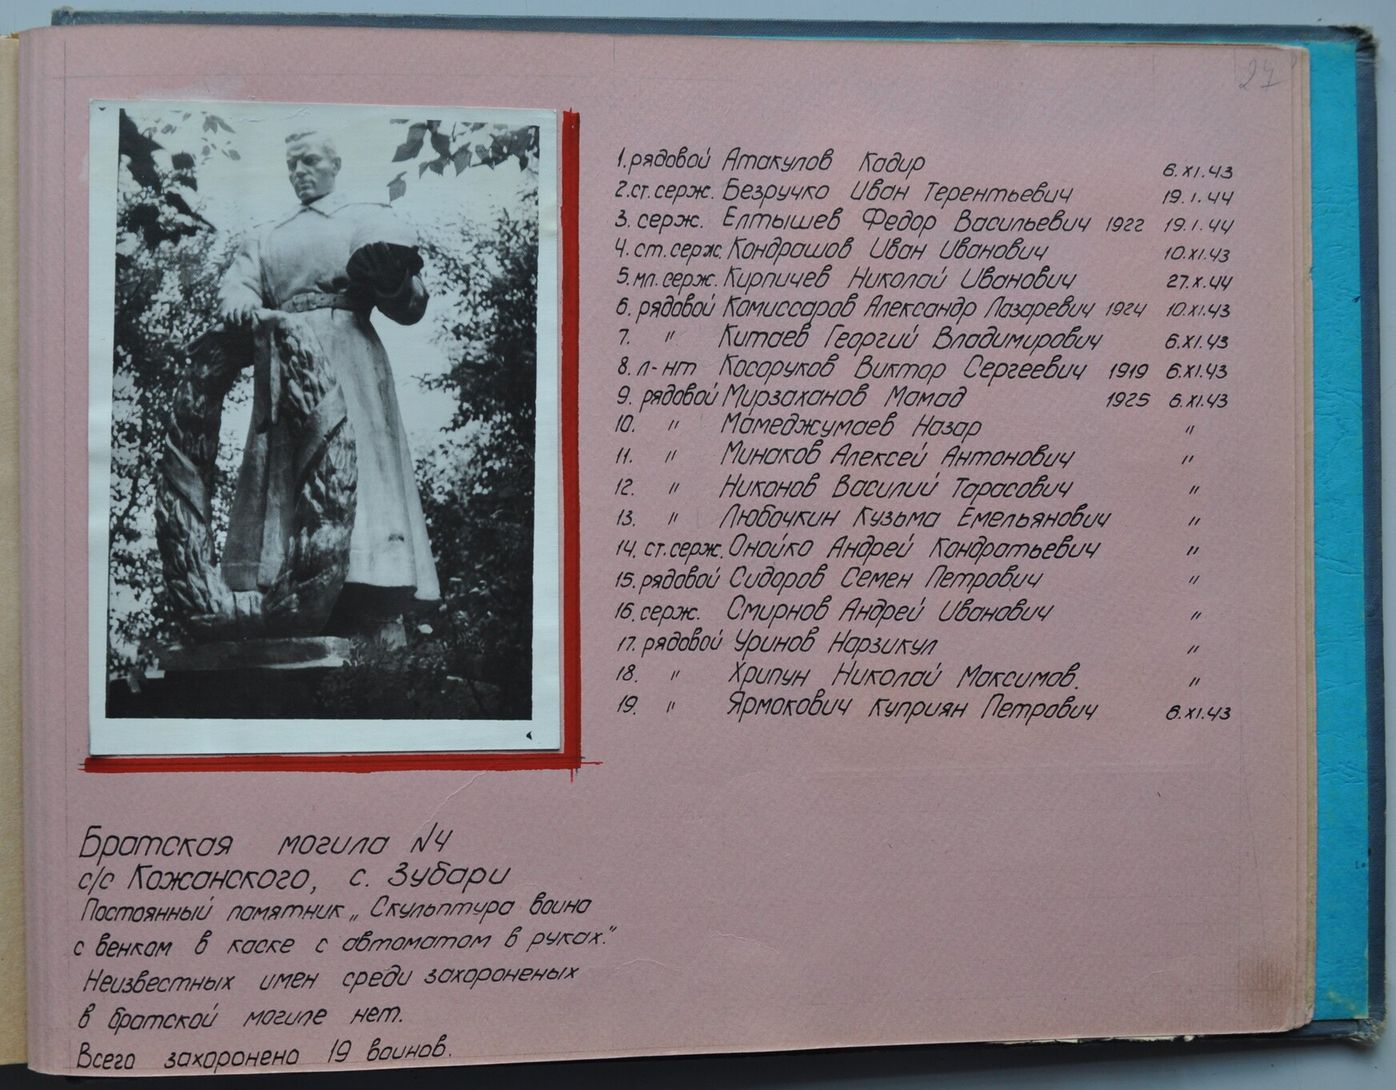 27
1. рядовой Атакулов Кадир 6.XI.43
2. ст. серж. Безручко Иван Терентьевич 19.1.44
3. серж. Елтышев Федор Васильевич 1922 19.1.44
4. ст. серж. Кондрашов Иван Иванович 10.XI.43
5. мл. серж. Кирпичев Николай Иванович 27.X.44
6. рядовой Комиссаров Александр Лазаревич 1924 10.XI.43
7. " Китаев Георгий Владимирович 6.XI.43
8. л-нт Косоруков Виктор Сергеевич 1919 6.XI.43
9. рядовой Мирзаханов Мамад 1925 6.XI.43
10. " Мамеджумаев Назар "
11. " Минаков Алексей Антонович "
12. " Никонов Василий Тарасович "
13. " Любочкин Кузьма Емельянович "
14. ст. серж. Онойко Андрей Кондратьевич "
15. рядовой Сидоров Семен Петрович "
16. серж. Смирнов Андрей Иванович "
17. рядовой Уринов Нарзикул "
18. " Хрипун Николай Максимов. "
19. " Ярмакович Куприян Петрович 6.XI.43
Братская могила №4
с/с Кожанского, с. Зубари
Постоянный памятник „Скульптура воина
с венком в каске с автоматом в руках."
Неизвестных имен среди захороненых
в братской могиле нет.
Всего захоронено 19 воинов.